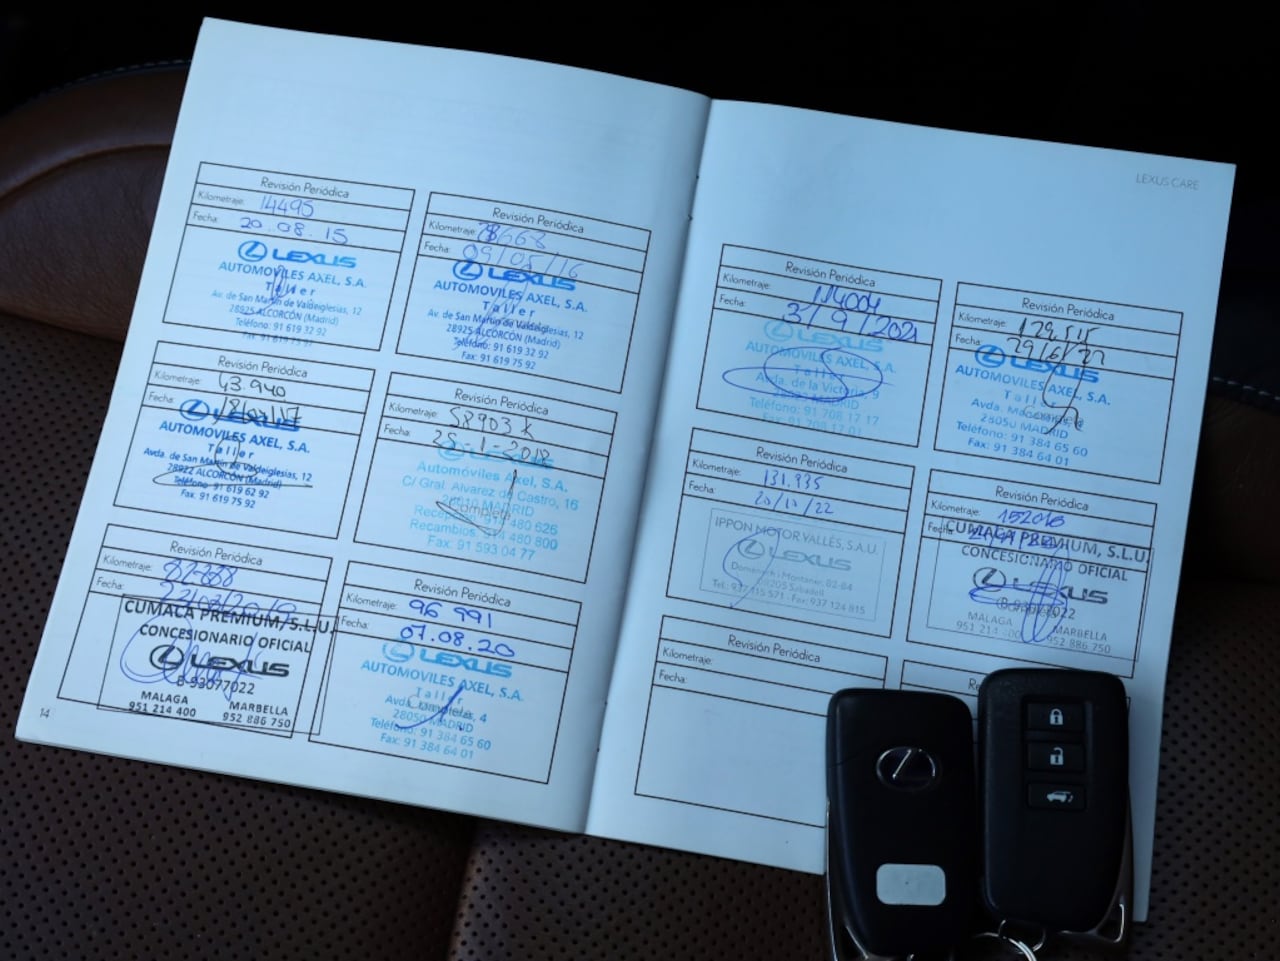 Revisión Periódica
Kilometraje: 14495
Fecha: 20.08.15
LEXUS
AUTOMOVILES AXEL, S.A.
Taller
Av. de San Martín de Valdeiglesias, 12
28925 ALCORCÓN (Madrid)
Teléfono: 91 619 32 92
Fax: 91 619 75 92
Revisión Periódica
Kilometraje:
Fecha: 09/05/16
LEXUS
AUTOMOVILES AXEL, S.A.
Taller
Av. de San Martín de Valdeiglesias, 12
28925 ALCORCÓN (Madrid)
Teléfono: 91 619 32 92
Fax: 91 619 75 92
Revisión Periódica
Kilometraje: 43.940
Fecha:
LEXUS
AUTOMOVILES AXEL, S.A.
Taller
Avda. de San Martín de Valdeiglesias, 12
28922 ALCORCÓN (Madrid)
Teléfono: 91 619 62 92
Fax: 91 619 75 92
Revisión Periódica
Kilometraje: 58903 K
Fecha: 25-1-2018
LEXUS
Automóviles Axel, S.A.
C/ Gral. Alvarez de Castro, 16
28010 MADRID
Recepción: 914 480 626
Recambios: 914 480 800
Fax: 91 593 04 77
Revisión Periódica
Kilometraje:
Fecha:
CUMACA PREMIUM, S.L.U.
CONCESIONARIO OFICIAL
LEXUS
B-93077022
MALAGA MARBELLA
951 214 400 952 886 750
Revisión Periódica
Kilometraje: 96 991
Fecha: 07.08.20
LEXUS
AUTOMOVILES AXEL, S.A.
Taller
28050 MADRID
Teléfono: 91 384 65 60
Fax: 91 384 64 01
14
LEXUS CARE
Revisión Periódica
Kilometraje: 114004
Fecha: 3/9/2021
LEXUS
AUTOMOVILES AXEL, S.A.
Taller
Avda. de la Victoria, 9
28023 MADRID
Teléfono: 91 708 17 17
Fax: 91 708 17 01
Revisión Periódica
Kilometraje: 129,515
Fecha: 29/6/22
LEXUS
AUTOMOVILES AXEL, S.A.
Taller
28050 MADRID
Teléfono: 91 384 65 60
Fax: 91 384 64 01
Revisión Periódica
Kilometraje: 131.935
Fecha:
IPPON MOTOR VALLÉS, S.A.U.
LEXUS
Domènech i Montaner, 82-84
08205 Sabadell
Tel.: 937 115 571 - Fax: 937 124 815
Revisión Periódica
Kilometraje:
Fecha:
CUMACA PREMIUM, S.L.U.
CONCESIONARIO OFICIAL
LEXUS
B-93077022
MALAGA MARBELLA
951 214 400 952 886 750
Revisión Periódica
Kilometraje:
Fecha: